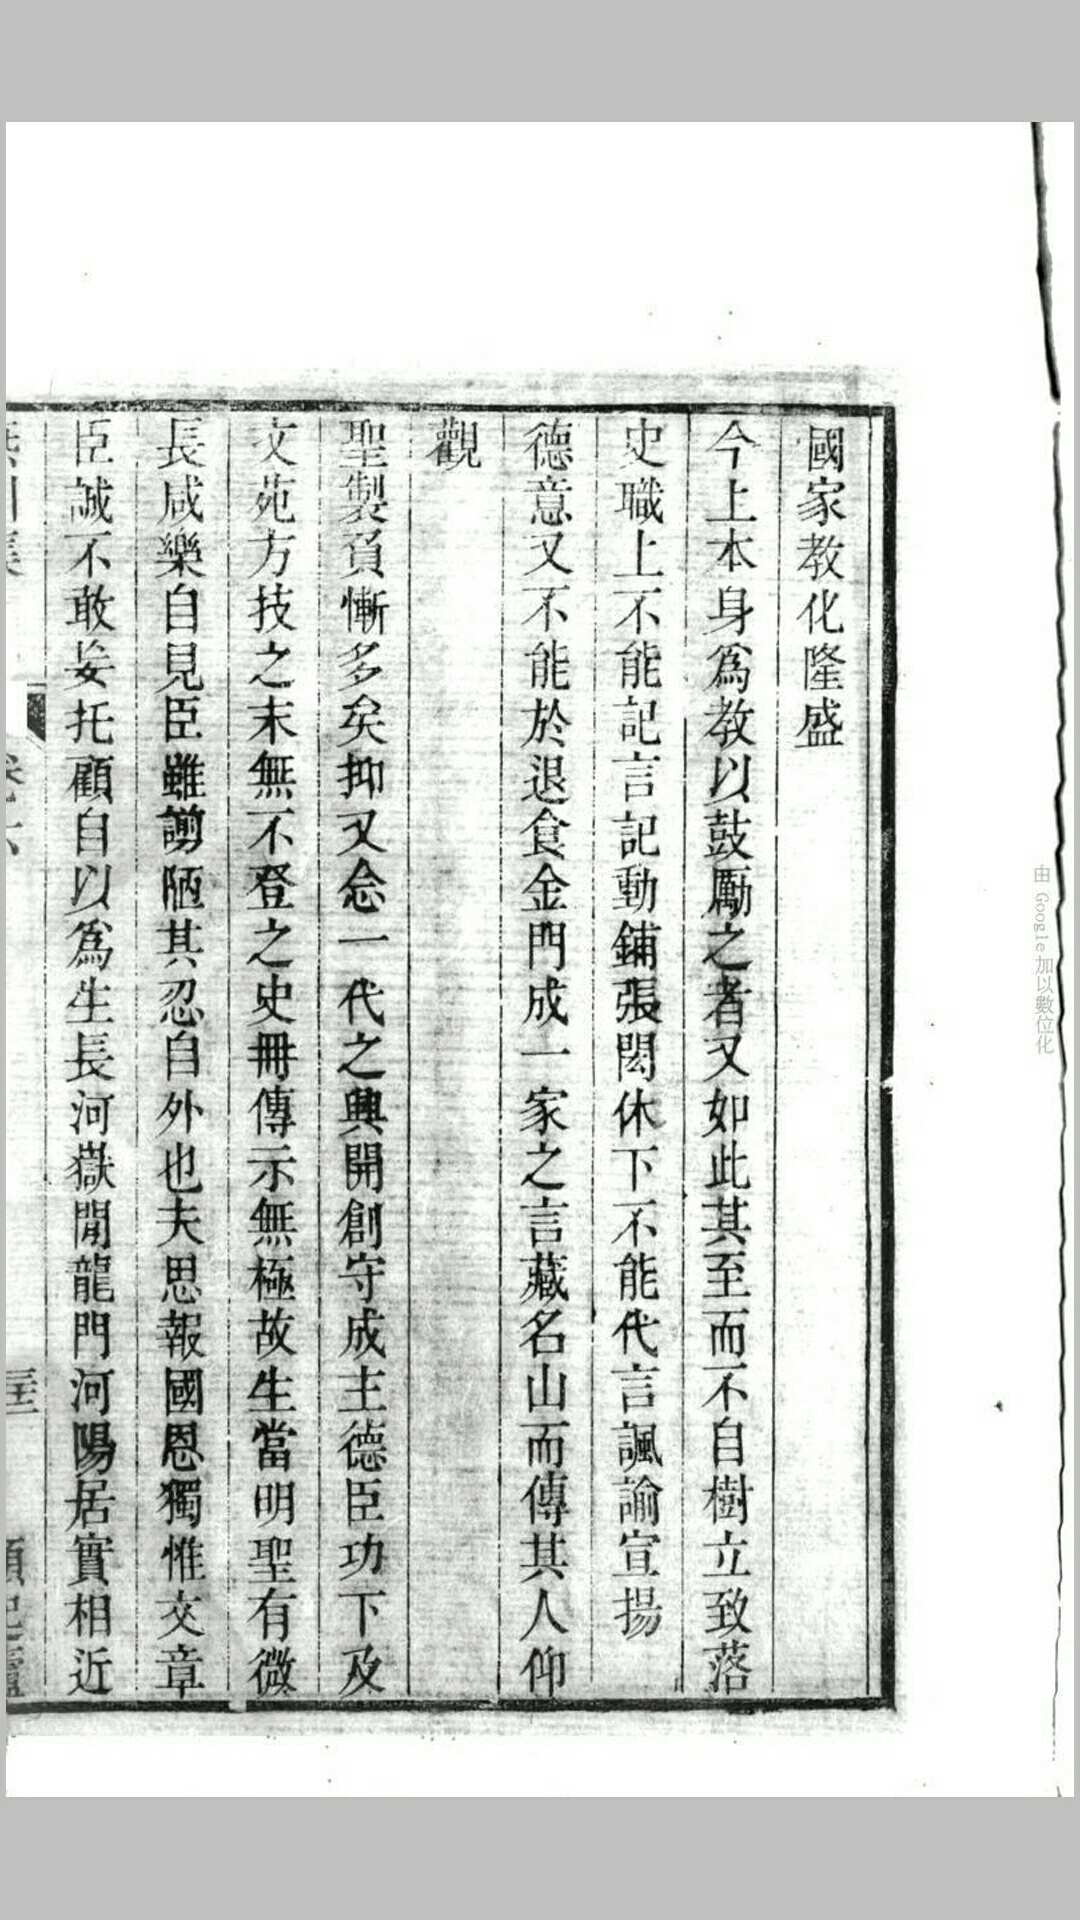 國家教化隆盛
今上本身爲教以鼓勵之者又如此其至而不自樹立致落
史職上不能記言記動鋪張閎休下不能代言諷諭宣揚
德意又不能於退食金門成一家之言藏名山而傳其人仰
觀
聖製負慚多矣抑又念一代之興開創守成主德臣功下及
文苑方技之末無不登之史冊傳示無極故生當明聖有微
長咸樂自見臣雖謭陋其忍自外也夫思報國恩獨惟文章
臣誠不敢妄托顧自以爲生長河嶽閒龍門河陽居實相近
卷六
由 Google 加以數位化